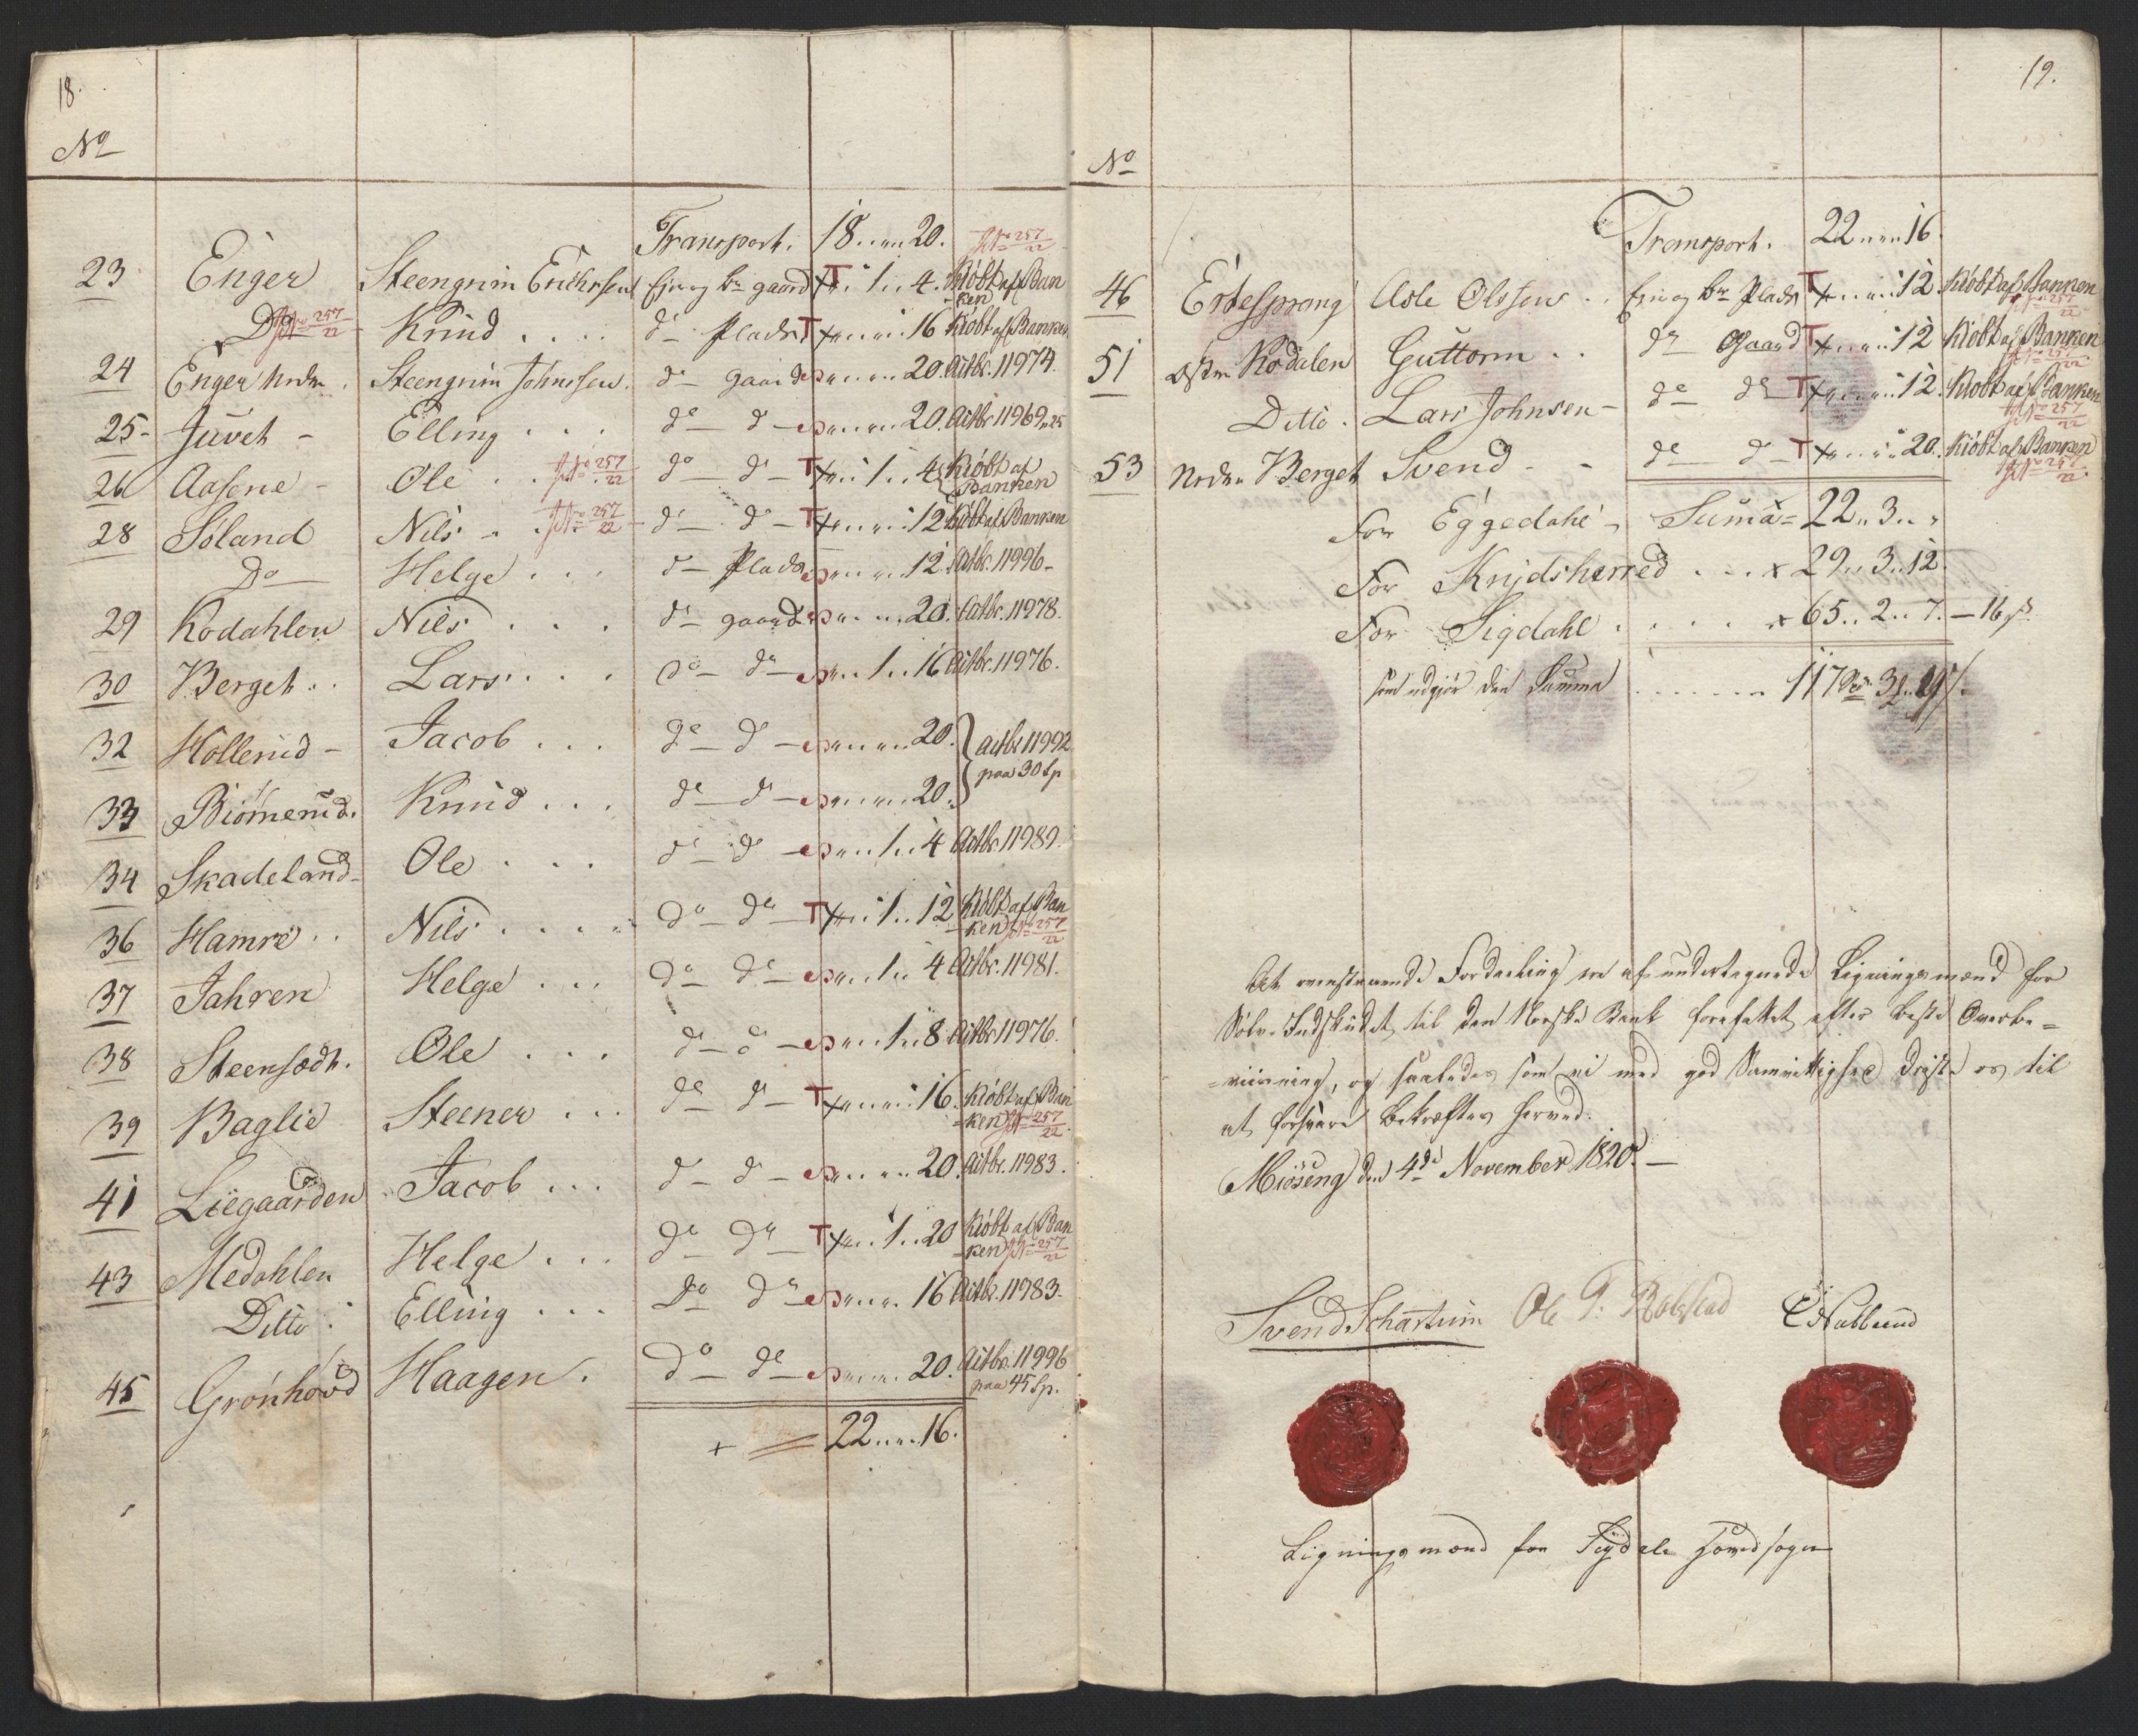 18.
No
Transport. 18 " " 20.
23 Enger Steengrim Erichsen Ejer og br gaard T x " 1 " 4. Kiöbt af Ban
ken
No 257/22
Do No 257/22 Knud . . . . do Plads T x " " 16 Kiöbt af Banken
24 Enger Nedre . Steengrim Johnsen . do gaard " " 20. Actbr. 11974.
25 - Juvet - Elling . . . do do - " " 20. Actbr 11969 " 25
26 Aasene - Ole . . No 257/22 do do - T x " 1 " 4 Kiöbt af
Banken
28 Söland Nils - . No 257/22 do do - T x " " 12 Kiöbt af Banken
Do Helge . . . do Plads " " 12. Actbr. 11996 -
29 Kodahlen Nils . . . do gaard " " 20. Actbr. 11978.
30 Berget . . Lars . . . do do - " 1 " 16 Actbr. 11976.
32 Hollerud - Jacob . . . do do - " " 20. } Actbr 11992
paa 30 Sp
33 Biörnerud. Knud . . . do do - " " 20.
34 Skadeland - Ole . . . do do - " 1 " 4 Actbr. 11989.
36 Hamre . . Nils . . . . do do - T x " 1 " 12 Kiöbt af Ban
ken No 257/22
37 Jahren Helge . . . do do - " 1 " 4 Actbr. 11981.
38 Steensædt. Ole . . . do do - " 1 " 8 Actbr 11976.
39 Baglie Steener . . . do do - T x " " 16. Kiöbt af Ban
=ken No 257/22.
41 Liegaarden Jacob . . . do do - " " 20. Actbr. 11983.
43 Medahlen Helge . . . do do - T x " 1 " 20 Kiöbt af Ban
=ken No 257/22
Ditto . Elling . . . Do do - " " 16 Actbr. 11983.
45 Grönhovd Haagen . Do do - " " 20. Actbr. 11996
paa 45 Sp.
+ 22 " " 16.
19.
No
Transport. 22 " " 16.
46 Ertesprang Asle Olsen . . Ejer og br Plads T x " " 12. Kiöbt af Banken
No 257/22
51 Östre Kodalen Guttorm . . do Gaard T x " " 12 Kiöbt af Banken
No 257/22
Ditto . Lars Johnsen - do do T x " " 12. Kiöbt af Banken
No 257/22
53 Nedre Berget Svend - - do do - T x " " 20. Kiöbt af Banken
No 257/22
For Eggedahl - Suma = 22 " 3 " "
For Krydsherred . . . x 29 " 3 " 12.
For Sigdahl . . . . x 65 " 2 " 7. - 16 s
som udgjör den Summa . . . . . 117 Sp 3 " 19 s.
At ovenstaaende Fordeeling er af undertegnede Ligningsmænd for
Sölv-Indskudet til den Norske Bank forfattet efter beste Overbe=
=viisning, og saaledes som vi med god Samvittighed driste os til
at forsvare bekræftes herved.
Miöseng den 4de November 1820. -
Svend Schartum Ole T: Kolsrud C Nubberud
Ligningsmænd for Sigdals Hovedsogn